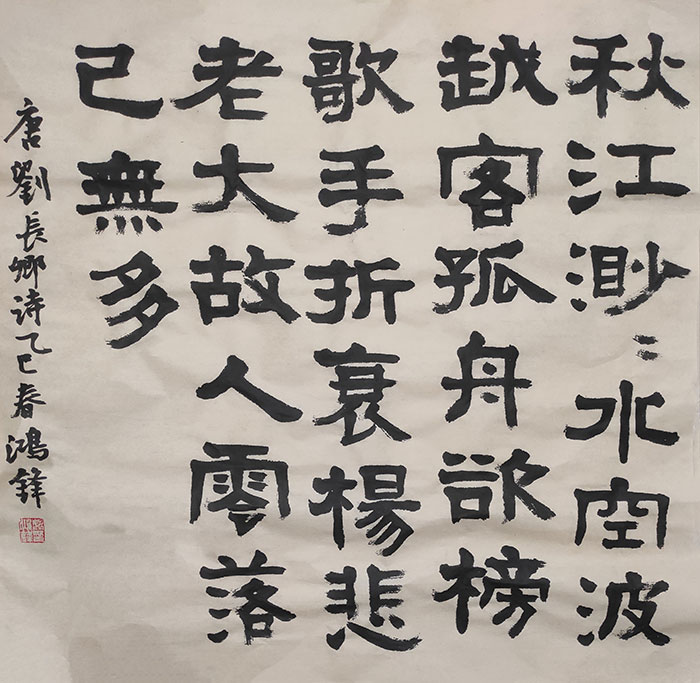 秋江渺〻水空波
越客孤舟欲榜
歌手折衰楊悲
老大故人零落
已無多
唐劉長卿詩乙巳春鴻鋒